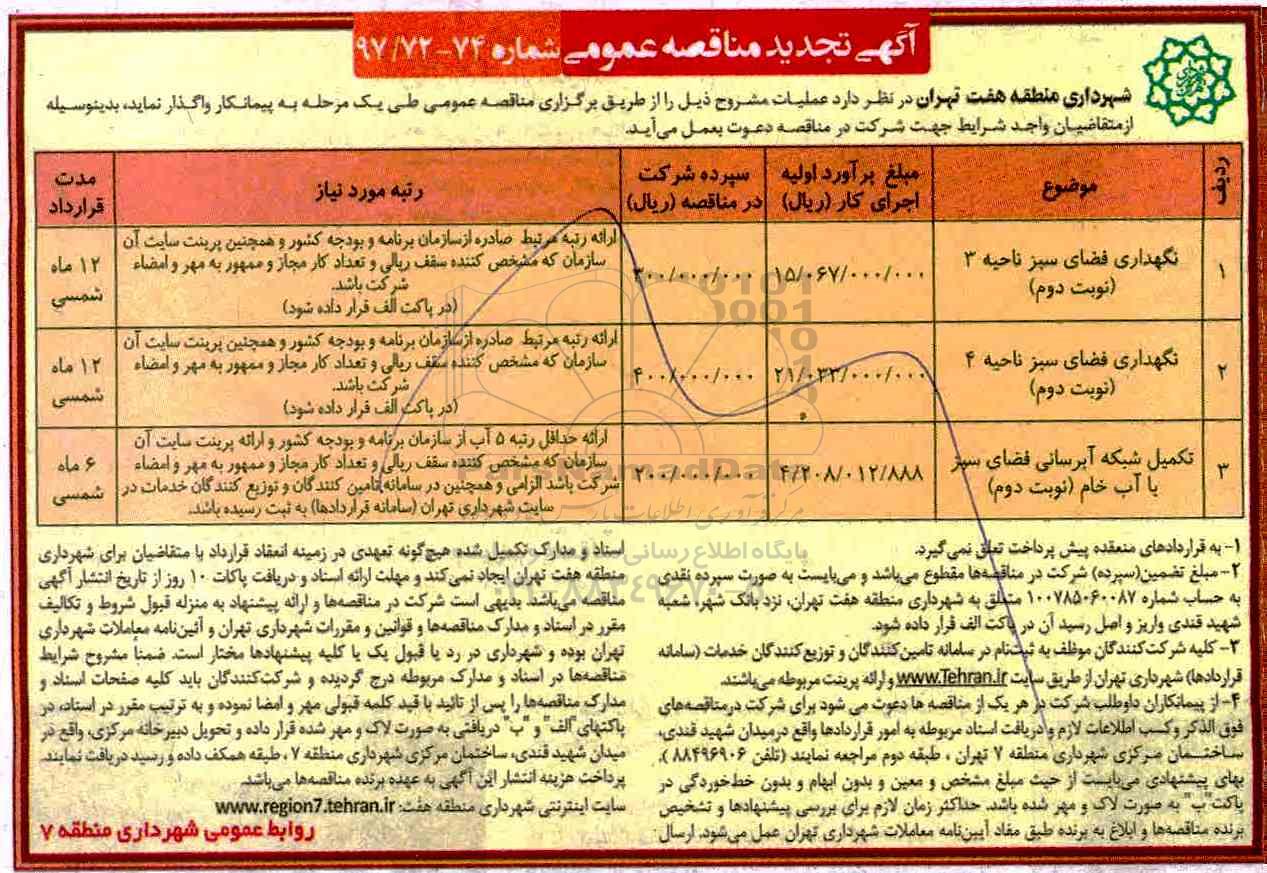 آگهی تجدید مناقصه عمومی شماره ۷۴-۹۷/۷۲
شهرداری منطقه هفت تهران در نظر دارد عملیات مشروح ذیل را از طریق برگزاری مناقصه عمومی طی یک مرحله به پیمانکار واگذار نماید، بدینوسیله
از متقاضیان واجد شرایط جهت شرکت در مناقصه دعوت بعمل می‌آید.
ردیف
موضوع
مبلغ برآورد اولیه
اجرای کار (ریال)
سپرده شرکت
در مناقصه (ریال)
رتبه مورد نیاز
مدت
قرارداد
۱
نگهداری فضای سبز ناحیه ۳
(نوبت دوم)
۱۵/۰۶۷/۰۰۰/۰۰۰
۳۰۰/۰۰۰/۰۰۰
ارائه رتبه مرتبط صادره از سازمان برنامه و بودجه کشور و همچنین پرینت سایت آن
سازمان که مشخص کننده سقف ریالی و تعداد کار مجاز و ممهور به مهر و امضاء
شرکت باشد.
(در پاکت الف قرار داده شود)
۱۲ ماه
شمسی
۲
نگهداری فضای سبز ناحیه ۴
(نوبت دوم)
۲۱/۰۳۳/۰۰۰/۰۰۰
۴۰۰/۰۰۰/۰۰۰
ارائه رتبه مرتبط صادره از سازمان برنامه و بودجه کشور و همچنین پرینت سایت آن
سازمان که مشخص کننده سقف ریالی و تعداد کار مجاز و ممهور به مهر و امضاء
شرکت باشد.
(در پاکت الف قرار داده شود)
۱۲ ماه
شمسی
۳
تکمیل شبکه آبرسانی فضای سبز
با آب خام (نوبت دوم)
۴/۲۰۸/۰۱۲/۸۸۸
۲۰۰/۰۰۰/۰۰۰
ارائه حداقل رتبه ۵ آب از سازمان برنامه و بودجه کشور و ارائه پرینت سایت آن
سازمان که مشخص کننده سقف ریالی و تعداد کار مجاز و ممهور به مهر و امضاء
شرکت باشد الزامی و همچنین در سامانه تامین کنندگان و توزیع کنندگان خدمات در
سایت شهرداری تهران (سامانه قراردادها) به ثبت رسیده باشد.
۶ ماه
شمسی
۱- به قراردادهای منعقده پیش پرداخت تعلق نمی‌گیرد.
۲- مبلغ تضمین(سپرده) شرکت در مناقصه‌ها مقطوع می‌باشد و می‌بایست به صورت سپرده نقدی
به حساب شماره ۱۰۰۷۸۵۰۶۰۰۸۷ متعلق به شهرداری منطقه هفت تهران، نزد بانک شهر، شعبه
شهید قندی واریز و اصل رسید آن در پاکت الف قرار داده شود.
۳- کلیه شرکت‌کنندگان موظف به ثبت‌نام در سامانه تامین‌کنندگان و توزیع‌کنندگان خدمات (سامانه
قراردادها) شهرداری تهران از طریق سایت www.Tehran.ir و ارائه پرینت مربوطه می‌باشند.
۴- از پیمانکاران داوطلب شرکت در هر یک از مناقصه ها دعوت می شود برای شرکت درمناقصه‌های
فوق الذکر و کسب اطلاعات لازم و دریافت اسناد مربوطه به امور قراردادها واقع درمیدان شهید قندی،
ساختمان مرکزی شهرداری منطقه ۷ تهران ، طبقه دوم مراجعه نمایند (تلفن ۸۸۴۹۶۹۰۶ ).
بهای پیشنهادی می‌بایست از حیث مبلغ مشخص و معین و بدون ابهام و بدون خط‌خوردگی در
پاکت"ب" به صورت لاک و مهر شده باشد. حداکثر زمان لازم برای بررسی پیشنهادها و تشخیص
برنده مناقصه‌ها و ابلاغ به برنده طبق مفاد آیین‌نامه معاملات شهرداری تهران عمل می‌شود. ارسال
اسناد و مدارک تکمیل شده هیچ‌گونه تعهدی در زمینه انعقاد قرارداد با متقاضیان برای شهرداری
منطقه هفت تهران ایجاد نمی‌کند و مهلت ارائه اسناد و دریافت پاکات ۱۰ روز از تاریخ انتشار آگهی
مناقصه می‌باشد. بدیهی است شرکت در مناقصه‌ها و ارائه پیشنهاد به منزله قبول شروط و تکالیف
مقرر در اسناد و مدارک مناقصه‌ها و قوانین و مقررات شهرداری تهران و آئین‌نامه معاملات شهرداری
تهران بوده و شهرداری در رد یا قبول یک یا کلیه پیشنهادها مختار است. ضمناً مشروح شرایط
مناقصه‌ها در اسناد و مدارک مربوطه درج گردیده و شرکت‌کنندگان باید کلیه صفحات اسناد و
مدارک مناقصه‌ها را پس از تائید با قید کلمه قبولی مهر و امضا نموده و به ترتیب مقرر در اسناد، در
پاکتهای"الف" و "ب" دریافتی به صورت لاک و مهر شده قرار داده و تحویل دبیرخانه مرکزی، واقع در
میدان شهید قندی، ساختمان مرکزی شهرداری منطقه ۷ ، طبقه همکف داده و رسید دریافت نمایند.
پرداخت هزینه انتشار این آگهی به عهده برنده مناقصه‌ها می‌باشد.
سایت اینترنتی شهرداری منطقه هفت: www.region7.tehran.ir
روابط عمومی شهرداری منطقه ۷
پایگاه اطلاع رسانی